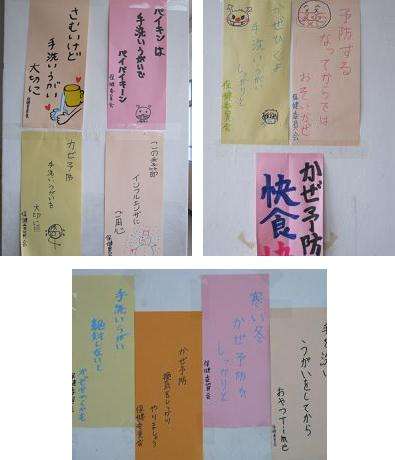 さむいけど
手洗いうがい
大切に
保健委員会
バイキンは
手洗いうがいで
バイバイキーン
保健委員会
かぜ予防
手洗いうがいを
大切に
保健委員会
この季節
インフルエンザに
ご用心
保健委員会
予防する
なってからでは
おそいなぜ
保健委員会
かぜひくよ
手洗いうがい
しっかりと
保健委員会
かぜ予防
快食
手洗いうがい
絶対しないと
かぜ予防
換気をしっかり
やりましょう
保健委員会
寒い冬
かぜ予防を
しっかりと
保健委員会
うがいをしてから
おやつTime
保健委員会